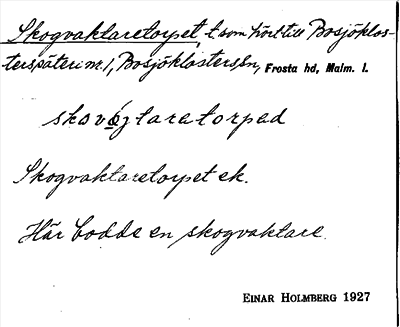 Skogvaktaretorpet, t som hört till Bosjöklos-
terspäteri nr. 1, Bosjöklosters sn, Frosta hd, Malm. l.
skovágtaretorpəd
Skogvaktaretorpet ek.
Här bodde en skogvaktare.
EINAR HOLMBERG 1927